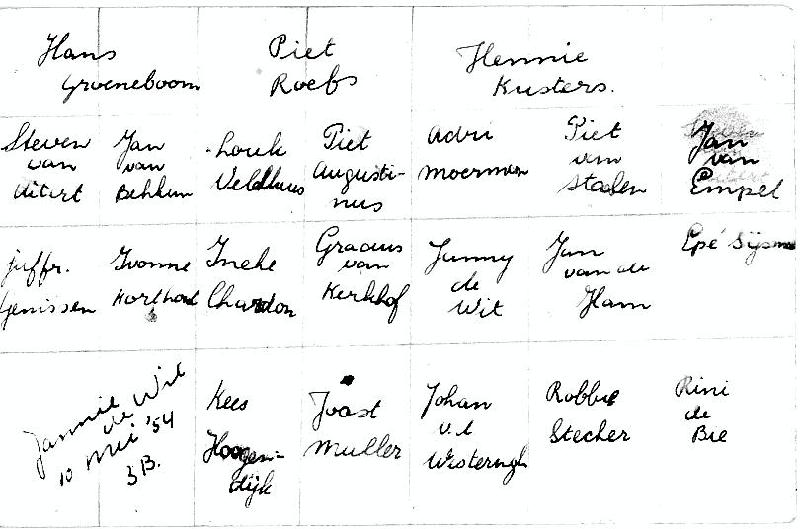 Hans
Groeneboom
Piet
Roefs
Hennie
Kusters.
Steven
van
Uitert
Jan
van
Bekkum
Louk
Veldhuis
Piet
Augusti-
nus
Adri
Moerman
Piet
van
Stalen
Jan
van
Empel
juffr.
Genissen
Yvonne
Korthout
Ineke
Chardon
Gradus
van
Kerkhof
Janny
de
Wit
Jan
van der
Ham
Epé Sijsma
Jannie
de Wit
10 Mei '54
3B.
Kees
Hoogen-
dijk
Joost
Muller
Johan
v.d
Robbie
Stecher
Rini
de
Bie